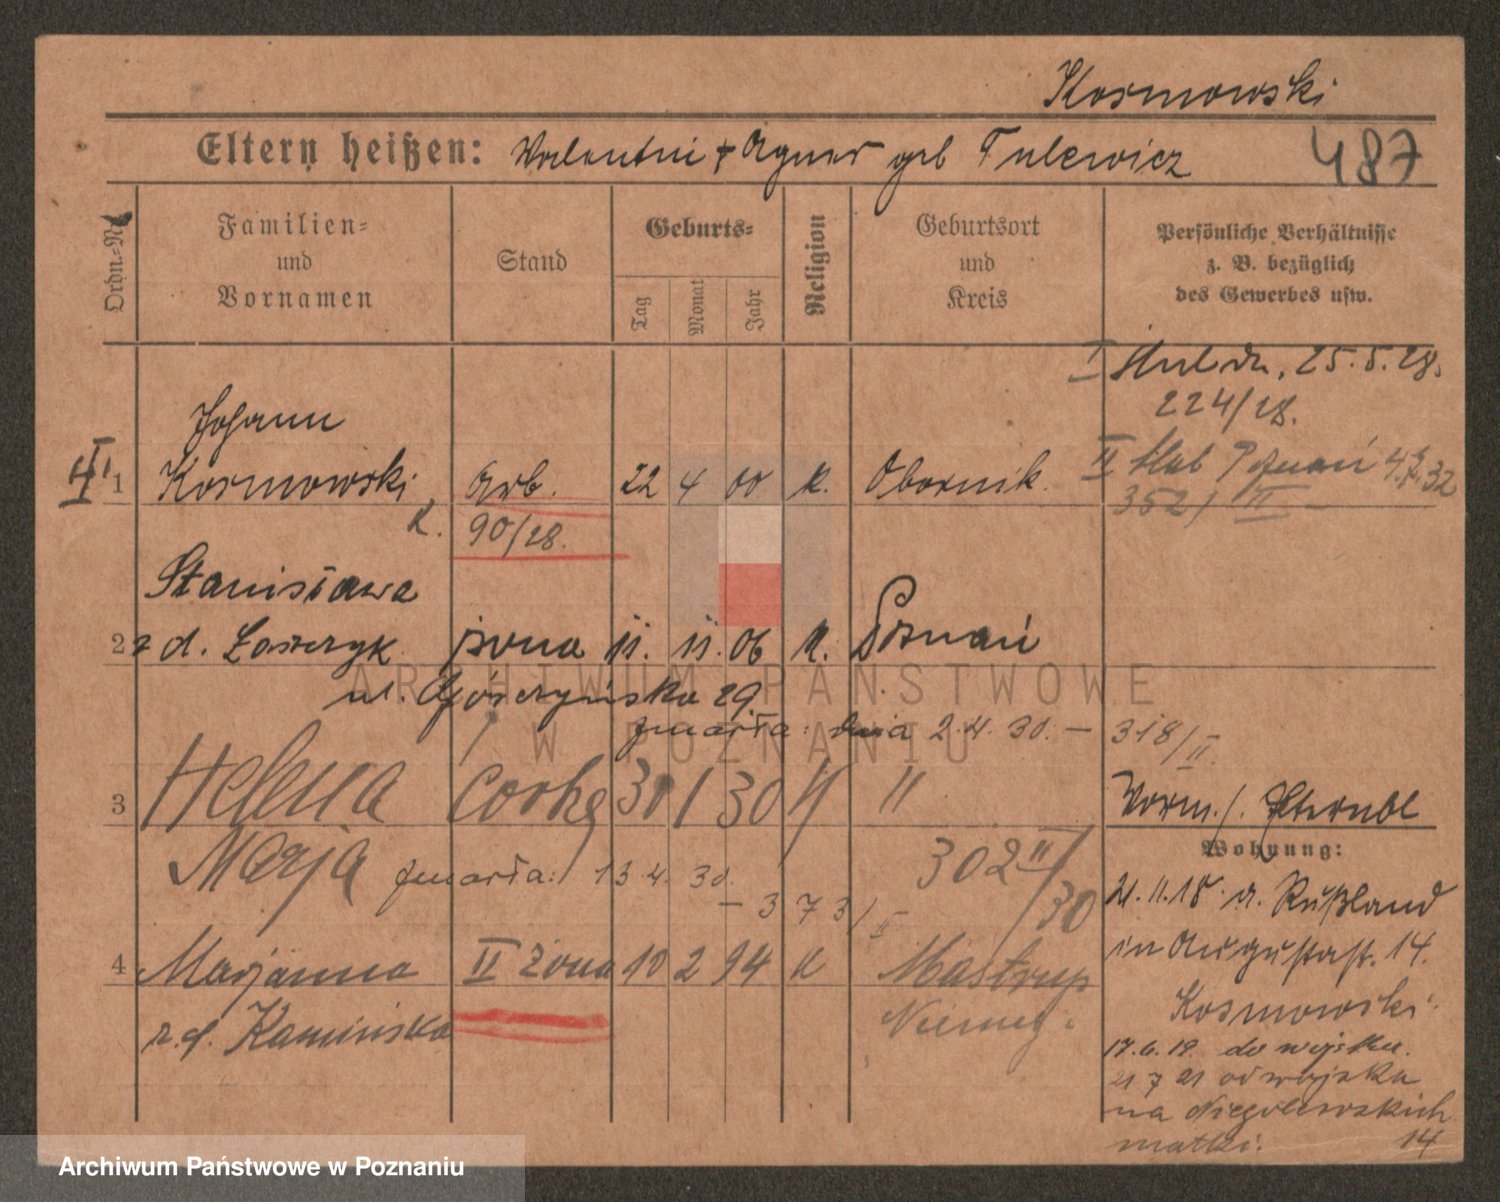 Kosmowski
Eltern heißen: Valentin + Agnes geb Tulewicz 487
Ordn.-Nr.
Familien-
und
Vornamen
Stand
Geburts-
Tag
Monat
Jahr
Religion
Geburtsort
und
Kreis
Persönliche Verhältnisse
z. B. bezüglich
des Gewerbes usw.
I 25.5.28.
224/28.
Johann
1 Kosmowski Arb. 22 4 00 k. Obornik.
II Poznań 4.7.32
352/II
k. 90/28.
Stanisława
2 z d. żona 11. 11. 06 k. Poznań
ul. Górczyńska 29.
zmarła: dnia 2.4.30. — 318/II.
3 Helena córka 30 1 30 " "
Marja zmarła: 13.4.30.
— 373/II
302 II/30
4 Marjanna II żona 10 2 94 k Mastrup
z.d. Kamińska Niemcy.
Vorm. /. Elternbl
Wohnung:
21.11.18. a. Rußland
in Augustast. 14.
Kosmowski.
17.6.19. do wojska.
21 7 21 od wojska
na Niegolewskich
14
matki.
ARCHIWUM PAŃSTWOWE
W POZNANIU
Archiwum Państwowe w Poznaniu